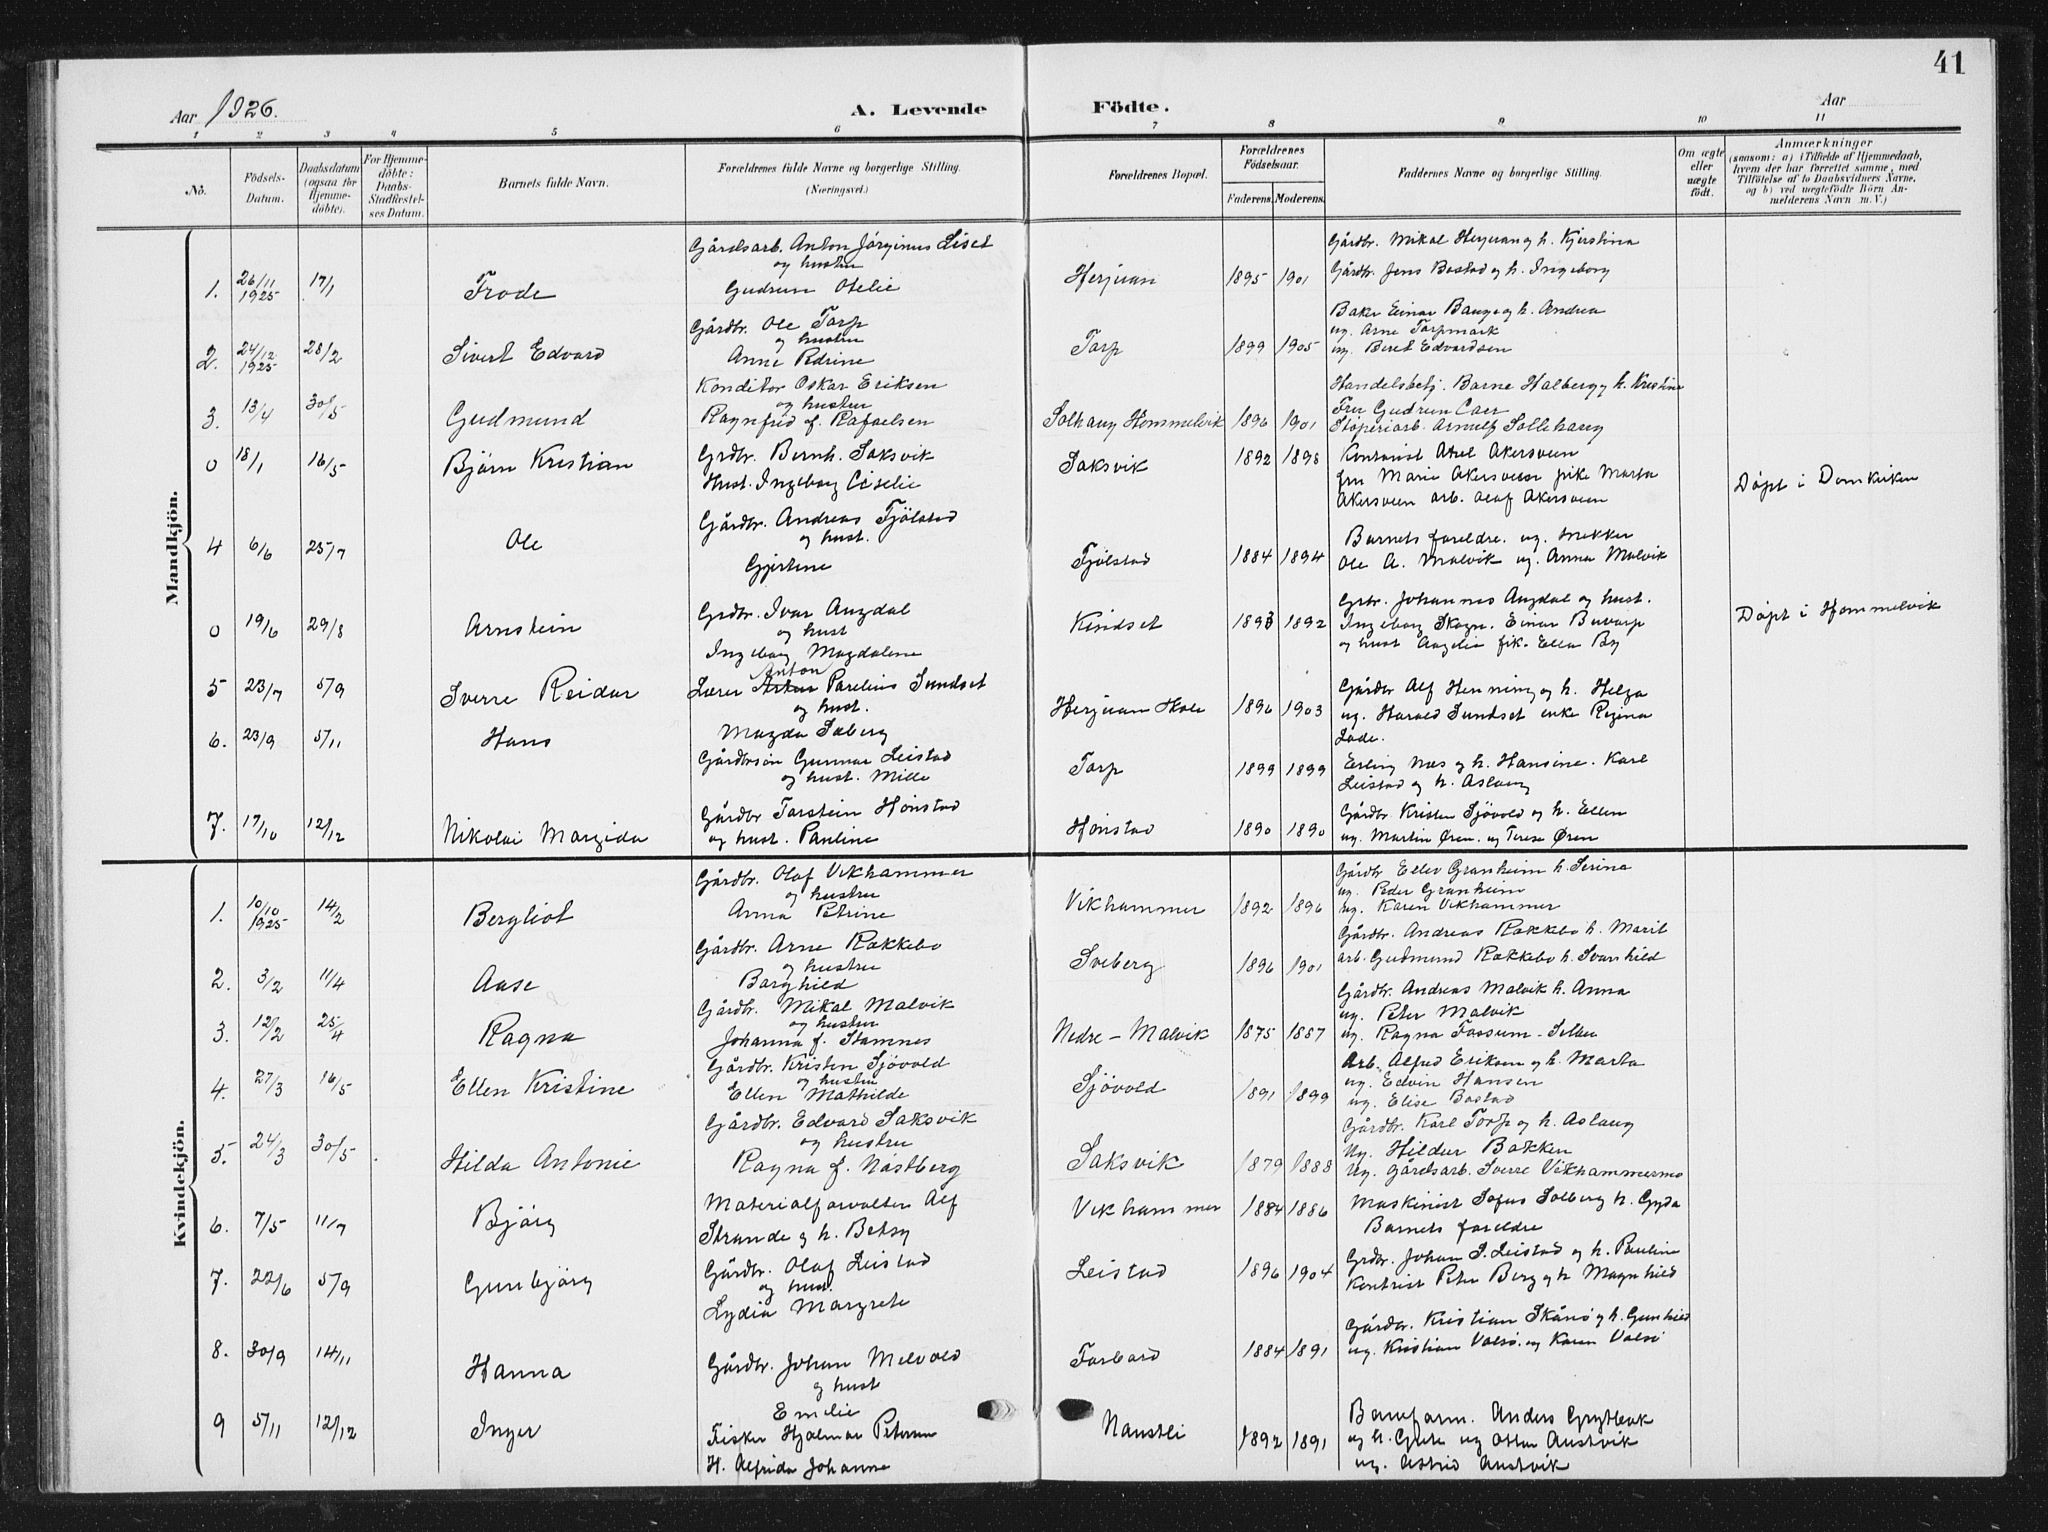 41
Aar 1926.
A. Levende Födte.
Aar
1 2 3 4 5 6 7 8 9 10 11
No.
Födsels-Datum.
Daabsdatum (ogsaa for Hjemmedöbte).
For Hjemmedöbte: Daabs-Stadfæstelses Datum.
Barnets fulde Navn.
Forældrenes fulde Navne og borgerlige Stilling. (Næringsvei.)
Forældrenes Bopæl.
Forældrenes Fødselsaar.
Faderens. Moderens.
Faddernes Navne og borgerlige Stilling.
Om ægte eller uægte födt.
Anmærkninger
(saasom: a) i Tilfælde af Hjemmedaab, hvem der har forrettet samme, med Tilföielse af to Daabsvidners Navne, og b) ved uægtefödte Börn Anmelderens Navn m. V.)
Mandkjön.
Gårdsarb. Anton Jörginus Liset
og hustru
Gudrun Otelie
1. 26/11 1925 17/1 Frode
Herjuan 1895 1901
Gårdbr. Mikal Herjuan og h. Kjerstina
Gårdbr. Jens Bostad og h. Ingeborg
Gårdbr. Ole Torp
og hustru
Anne Petrine
2. 24/12 1925 28/2 Sivert Edvard
Torp 1899 1905
Baker Einar Bauge og h. Andrea
ug. Arne Torpmark
ug. Beret Edvardsen
Konditor Oskar Eriksen
og hustru
Ragnfrid f. Rafaelsen
3. 13/4 30/5 Gudmund
Solhaug Hommelvik 1896 1901
Handelsbetj. Barne Halberg og h. Kristine
Fru Gudrun Caer
Støperiarb. Arnulf Sollihaug
0 18/1 16/5 Björn Kristian
Grdbr. Bernh. Saksvik
Hust. Ingeborg Ciselie
Saksvik 1892 1898
Kontorist Axel Akersveen
fru Marie Akersveen frk. Marta
Akersveen arb. Olaf Akersveen
Döpt i Domkirken
Gårdbr. Andreas Fjölstad
og hust.
Gjertine
4 6/6 25/7 Ole
Fjölstad 1884 1894
Barnets foreldre. ug. snekker
Ole A. Malvik ug. Anna Malvik
Grdbr. Ivar Augdal
og hust
Ingeborg Magdalene
0 19/6 29/8 Arnstein
Kindset 1893 1892
Grbr. Johannes Augdal og hust.
Ingeborg Skogn. Einar Buvarp
og hust Aagelie frk. Ella By
Döpt i Hommelvik
5 23/7 5/9 Sverre Reidar
Anton
Lærer Parelius Sundset
og hust.
Magda Solberg
Herjuan Skole 1896 1903
Gårdbr Alf Henning og h. Helga
ug. Harald Sundset enke Regina
Lade.
6. 23/9 5/11 Hans
Gårdbrsøn Gunnar Leistad
og hust. Mille
Torp 1899 1899
Erling Næs og h. Hansine. Karl
Leistad og h. Aslaug
7. 17/10 12/12 Nikolai Margido
Gårdbr Torstein Hønstad
og hust. Pauline
Hønstad 1890 1890
Gårdbr Kristen Sjövold og h. Ellen
ug. Martin Øren. ug Terese Øren
Kvindekjön.
Gårdbr. Olaf Vikhammer
og hustru
Anna Petrine
1. 10/10 1925 14/2 Bergliot
Vikhammer 1892 1896
Gårdbr Ellev Granheim h. Serina
ug. Peder Granheim
ug. Karen Vikhammer
Gårdbr. Arne Rokkebo
og hustru
Borghild
2. 3/2 11/4 Aase
Sveberg 1896 1901
Gårdbr. Andreas Rokkebo h. Marit
arb. Gudmund Rokkebo h. Svanhild
Gårdbr. Mikal Malvik
og hustru
Johanna f. Stamnes
3. 12/2 25/4 Ragna
Nedre - Malvik 1875 1887
Gårdbr. Andreas Malvik h. Anna
ug. Peter Malvik
ug. Ragna Fossum - Selbu
Gårdbr. Kristen Sjövold
og hustru
Ellen Mathilde
4. 27/3 16/5 Ellen Kristine
Sjövold 1891 1899
Arb. Alfred Eriksen og h. Marta
ug. Edvin Hansen
ug. Elise Bostad
Gårdbr. Edvard Saksvik
og hustru
Ragna f. Nåstberg
5. 24/3 30/5 Hilda Antonie
Saksvik 1879 1888
Gårdbr. Karl Torp og h. Aslaug
Ug. Hildur Bakken
Ug. Gårdsarb. Sverre Vikhammermo
6. 7/5 11/7 Bjørg
Materialforvalter Alf
Strande og h. Betsy
Vikhammer 1884 1886
Maskinist Sofus Solberg h. Gyda
Barnets foreldre
7. 22/6 5/9 Gunbjørg
Gårdbr. Olaf Leistad
og hust.
Lydia Margrete
Leistad 1896 1904
Grdbr. Johan S. Leistad og h. Pauline
Kontrist Peter Berg og h Magnhild
8. 30/9 14/11 Hanna
Gårdbr. Johan Melvold
og hust
Emelie
Forbord 1884 1891
Gårdbr. Kristian Skånø og h. Gunhild
ug. Kristian Valsø. ug Karen Valsø
9 5/11 12/12 Inger
Fisker Hjalmar Petersen
H. Alfrida Johanne
Naustli 1892 1891
Baneform. Anders Grytbak
og h. Grete ug Ottar Austvik
ug. Astrid Austvik